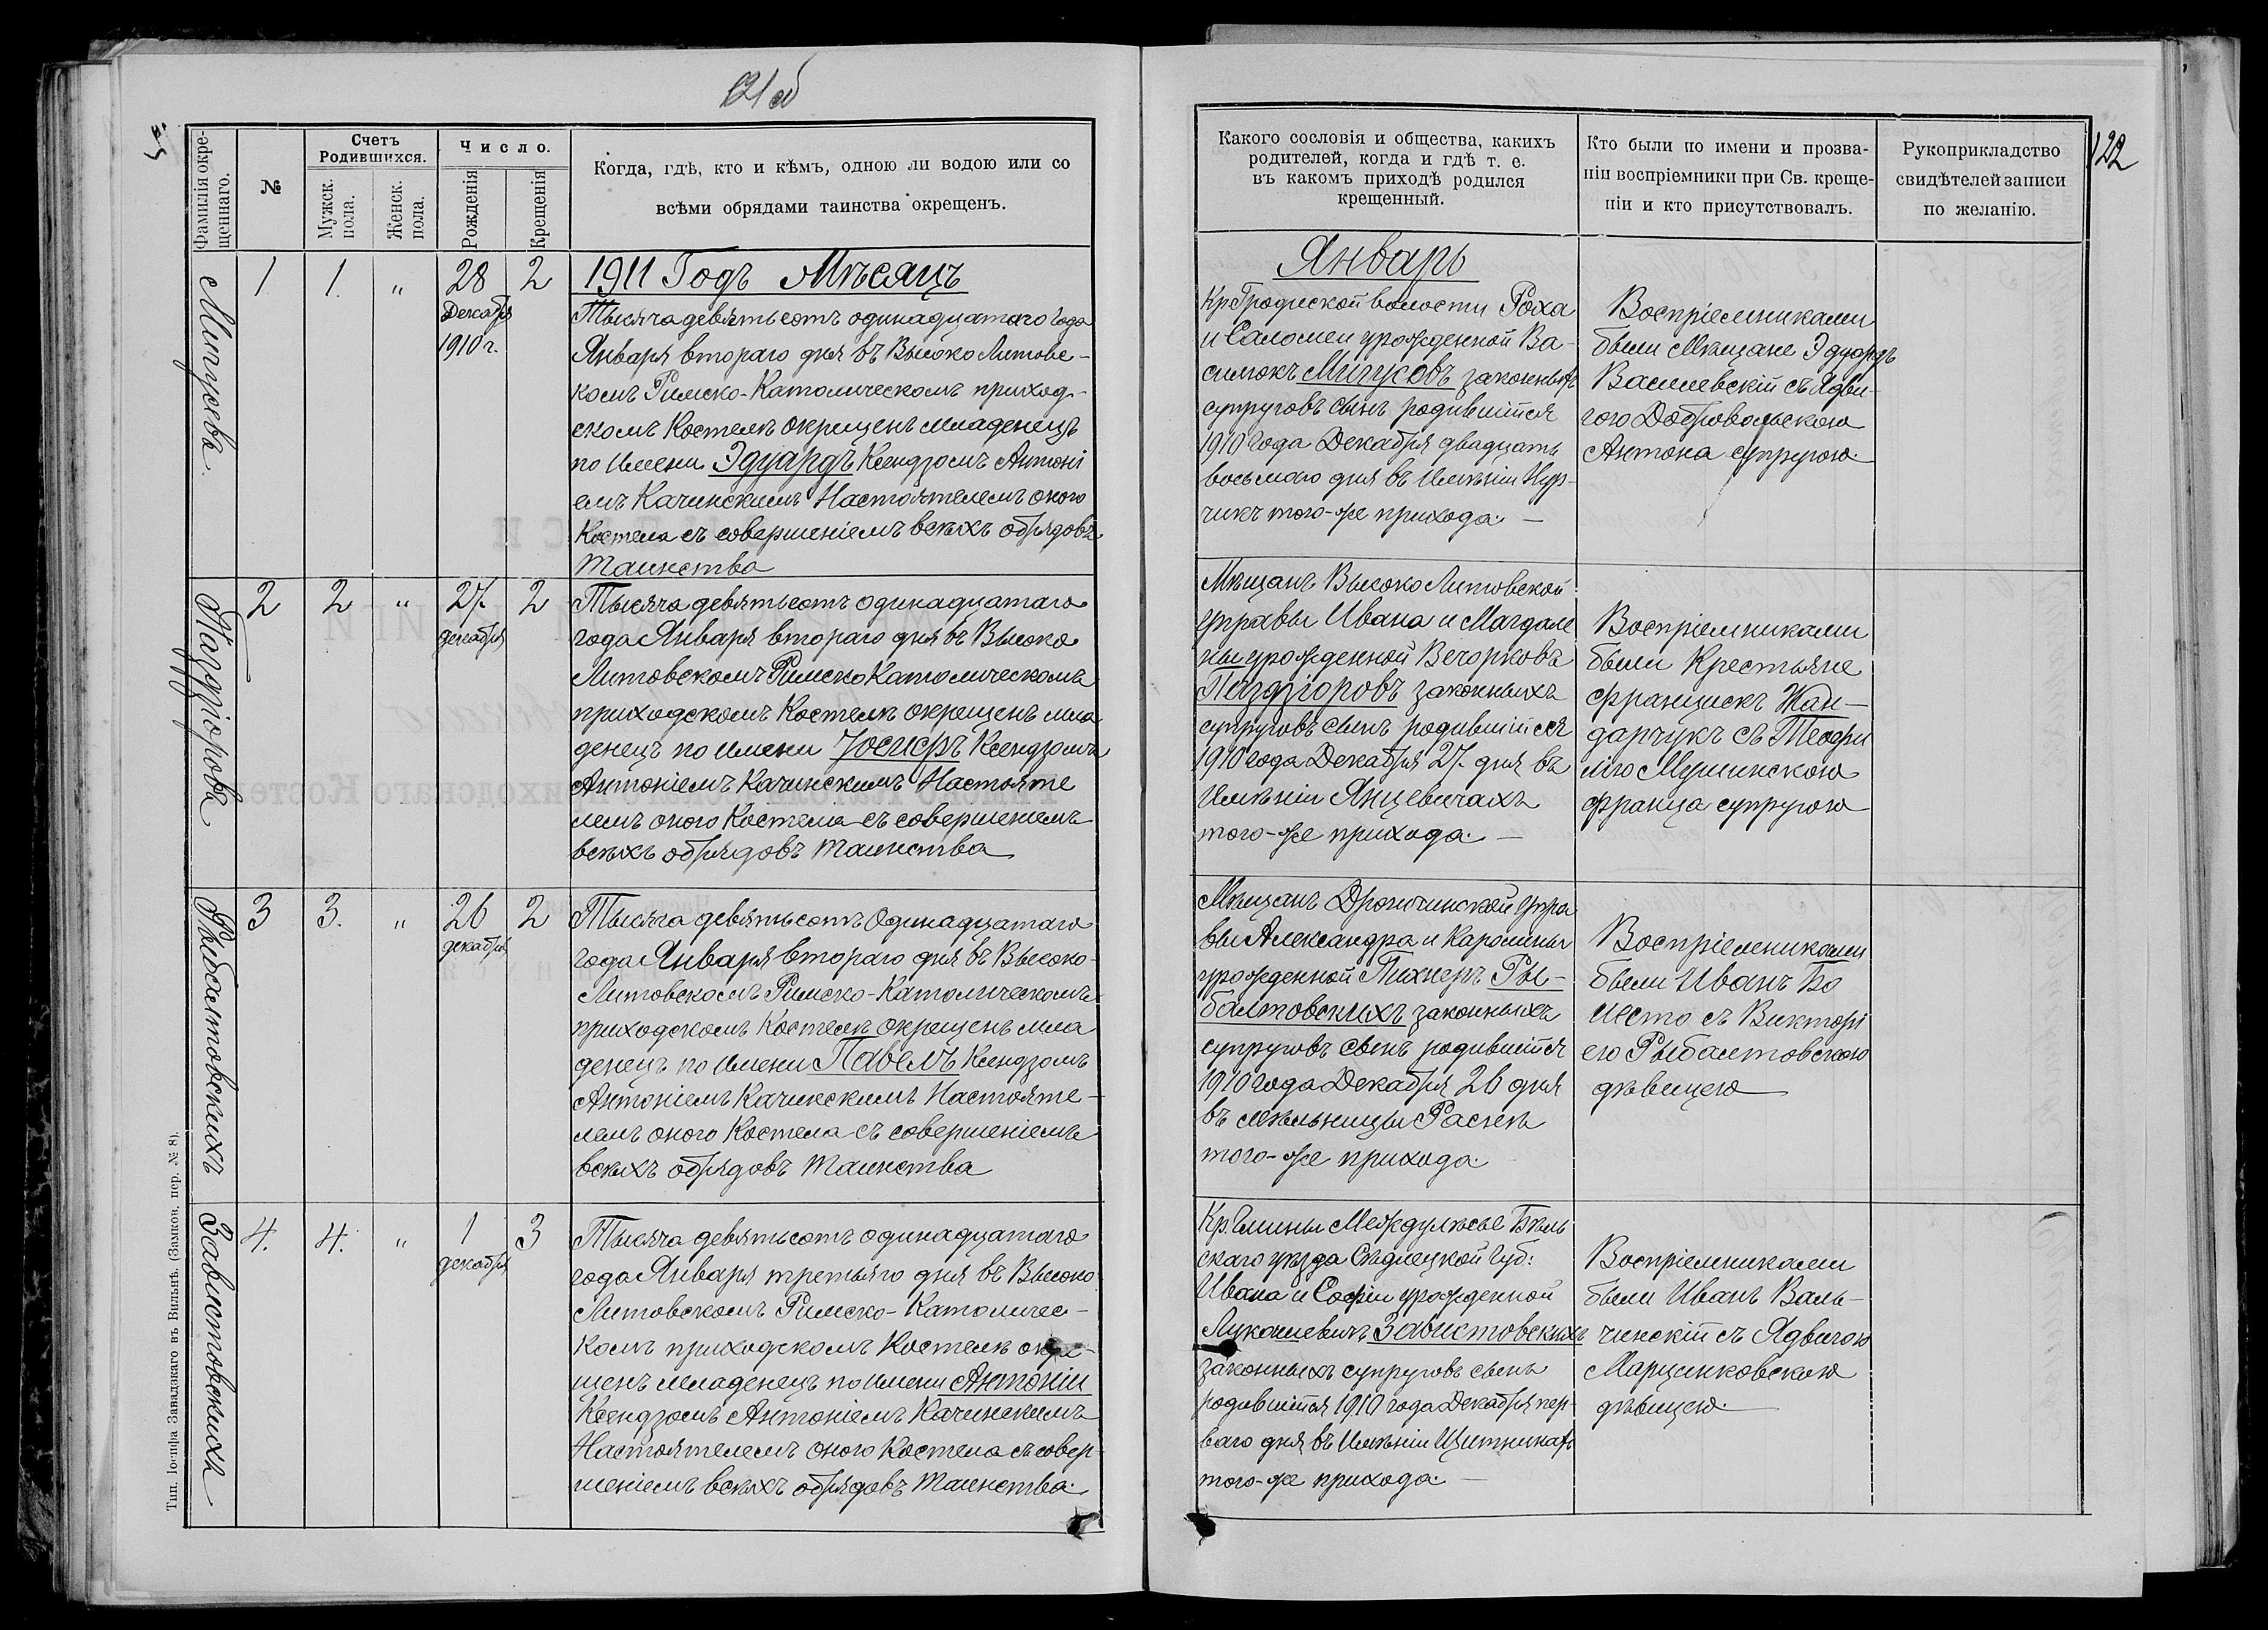 121 об
122
Фамилія окре-
щеннаго.
№
Счетъ
Родившихся.
Мужск.
пола.
Женск.
пола.
Число.
Рожденія
Крещенія
Когда, гдѣ, кто и кѣмъ, одною ли водою или со
всѣми обрядами таинства окрещенъ.
Какого сословія и общества, какихъ
родителей, когда и гдѣ т. е.
въ какомъ приходѣ родился
крещенный.
Кто были по имени и прозва-
ніи воспріемники при Св. креще-
ніи и кто присутствовалъ.
Рукоприкладство
свидѣтелей записи
по желанію.
Мигусева
1 1. " 28 2
Декабря
1910 г.
1911 Годъ Мѣсяцъ
Тысяча девятьсотъ одинадцатаго года
Января втораго дня въ Высоко Литовс-
комъ Римско-Католическомъ приход-
скомъ Костелѣ окрещенъ младенецъ
по имени Эдуардъ Ксендзомъ Антоні
емъ Качинскимъ Настоятелемъ оного
Костела съ совершеніемъ всѣхъ обрядовъ
Таинства
Январь
Кр. Гродиской волости Роха
и Саломеи урожденной Ва-
силюкъ Мигусовъ законныхъ
супруговъ сынъ родившійся
1910 года Декабря двадцать
восьмого дня въ Имѣніи Нур-
чикъ того-же прихода. —
Воспріемниками
были Мѣщане Эдуардъ
Василевскій съ Ядви-
гою Добровольскою
Антона супругою.
Паздзіорова
2 2 " 27. 2
декабря
Тысяча девятьсотъ одинадцатаго
года Января втораго дня въ Высоко
Литовскомъ Римско Католическомъ
приходскомъ Костелѣ окрещенъ мла
денецъ по имени Іосифъ Ксендзомъ
Антоніемъ Качинскимъ Настояте
лемъ оного Костела съ совершеніемъ
всѣхъ обрядовъ Таинства
Мѣщанъ Высоко Литовской
управы Ивана и Магдале
ны урожденной Вечорковъ
Паздзіоровъ законныхъ
супруговъ сынъ родившійся
1910 года Декабря 27. дня въ
Имѣніи Янцевичахъ
того-же прихода. —
Воспріемниками
были Крестьяне
Францискъ Жан-
дарчукъ съ Теофи
лію Мушинскою
Франца супругою
Рыбалтовскихъ
3 3. " 26 2
декабря
Тысяча девятьсотъ Одинадцатаго
года Января втораго дня въ Высоко-
Литовскомъ Римско-Католическомъ
приходскомъ Костелѣ окрещенъ мла
денецъ по имени Павелъ Ксендзомъ
Антоніемъ Качинскимъ Настояте-
лемъ оного Костела съ совершеніемъ
всѣхъ обрядовъ Таинства
Мѣщанъ Дрогичинской Упра
вы Александра и Каролины
урожденной Пихнеръ Ры-
балтовскихъ законныхъ
супруговъ сынъ родившійся
1910 года Декабря 26 дня
въ мѣльницы
того-же прихода.
Воспріемниками
были Иванъ
съ Викторі
ею Рыбалтовскою
дѣвицею
Завистовскихъ
4. 4. " 1 3
декабря
Тысяча девятьсотъ одинадцатаго
года Января третьяго дня въ Высоко
Литовскомъ Римско-Католичес-
комъ приходскомъ Костелѣ окре-
щенъ младенецъ по имени Антоній
Ксендзомъ Антоніемъ Качинскимъ
Настоятелемъ оного Костела съ совер
шеніемъ всѣхъ обрядовъ Таинства.
Кр. Гмины Междулѣсье Бѣль
скаго уѣзда Сѣдлецкой Губ:
Ивана и Софіи урожденной
Лукашевичъ Завистовскихъ
законныхъ супруговъ сынъ
родившійся 1910 года Декабря пер-
ваго дня въ Имѣніи Щитникахъ
того-же прихода. —
Воспріемниками
были Иванъ Валь-
чинскій съ Ядвигою
Марцинковскою
дѣвицею.
Тип. Іосифа Завадзкаго въ Вильнѣ. (Замков. пер. № 8).